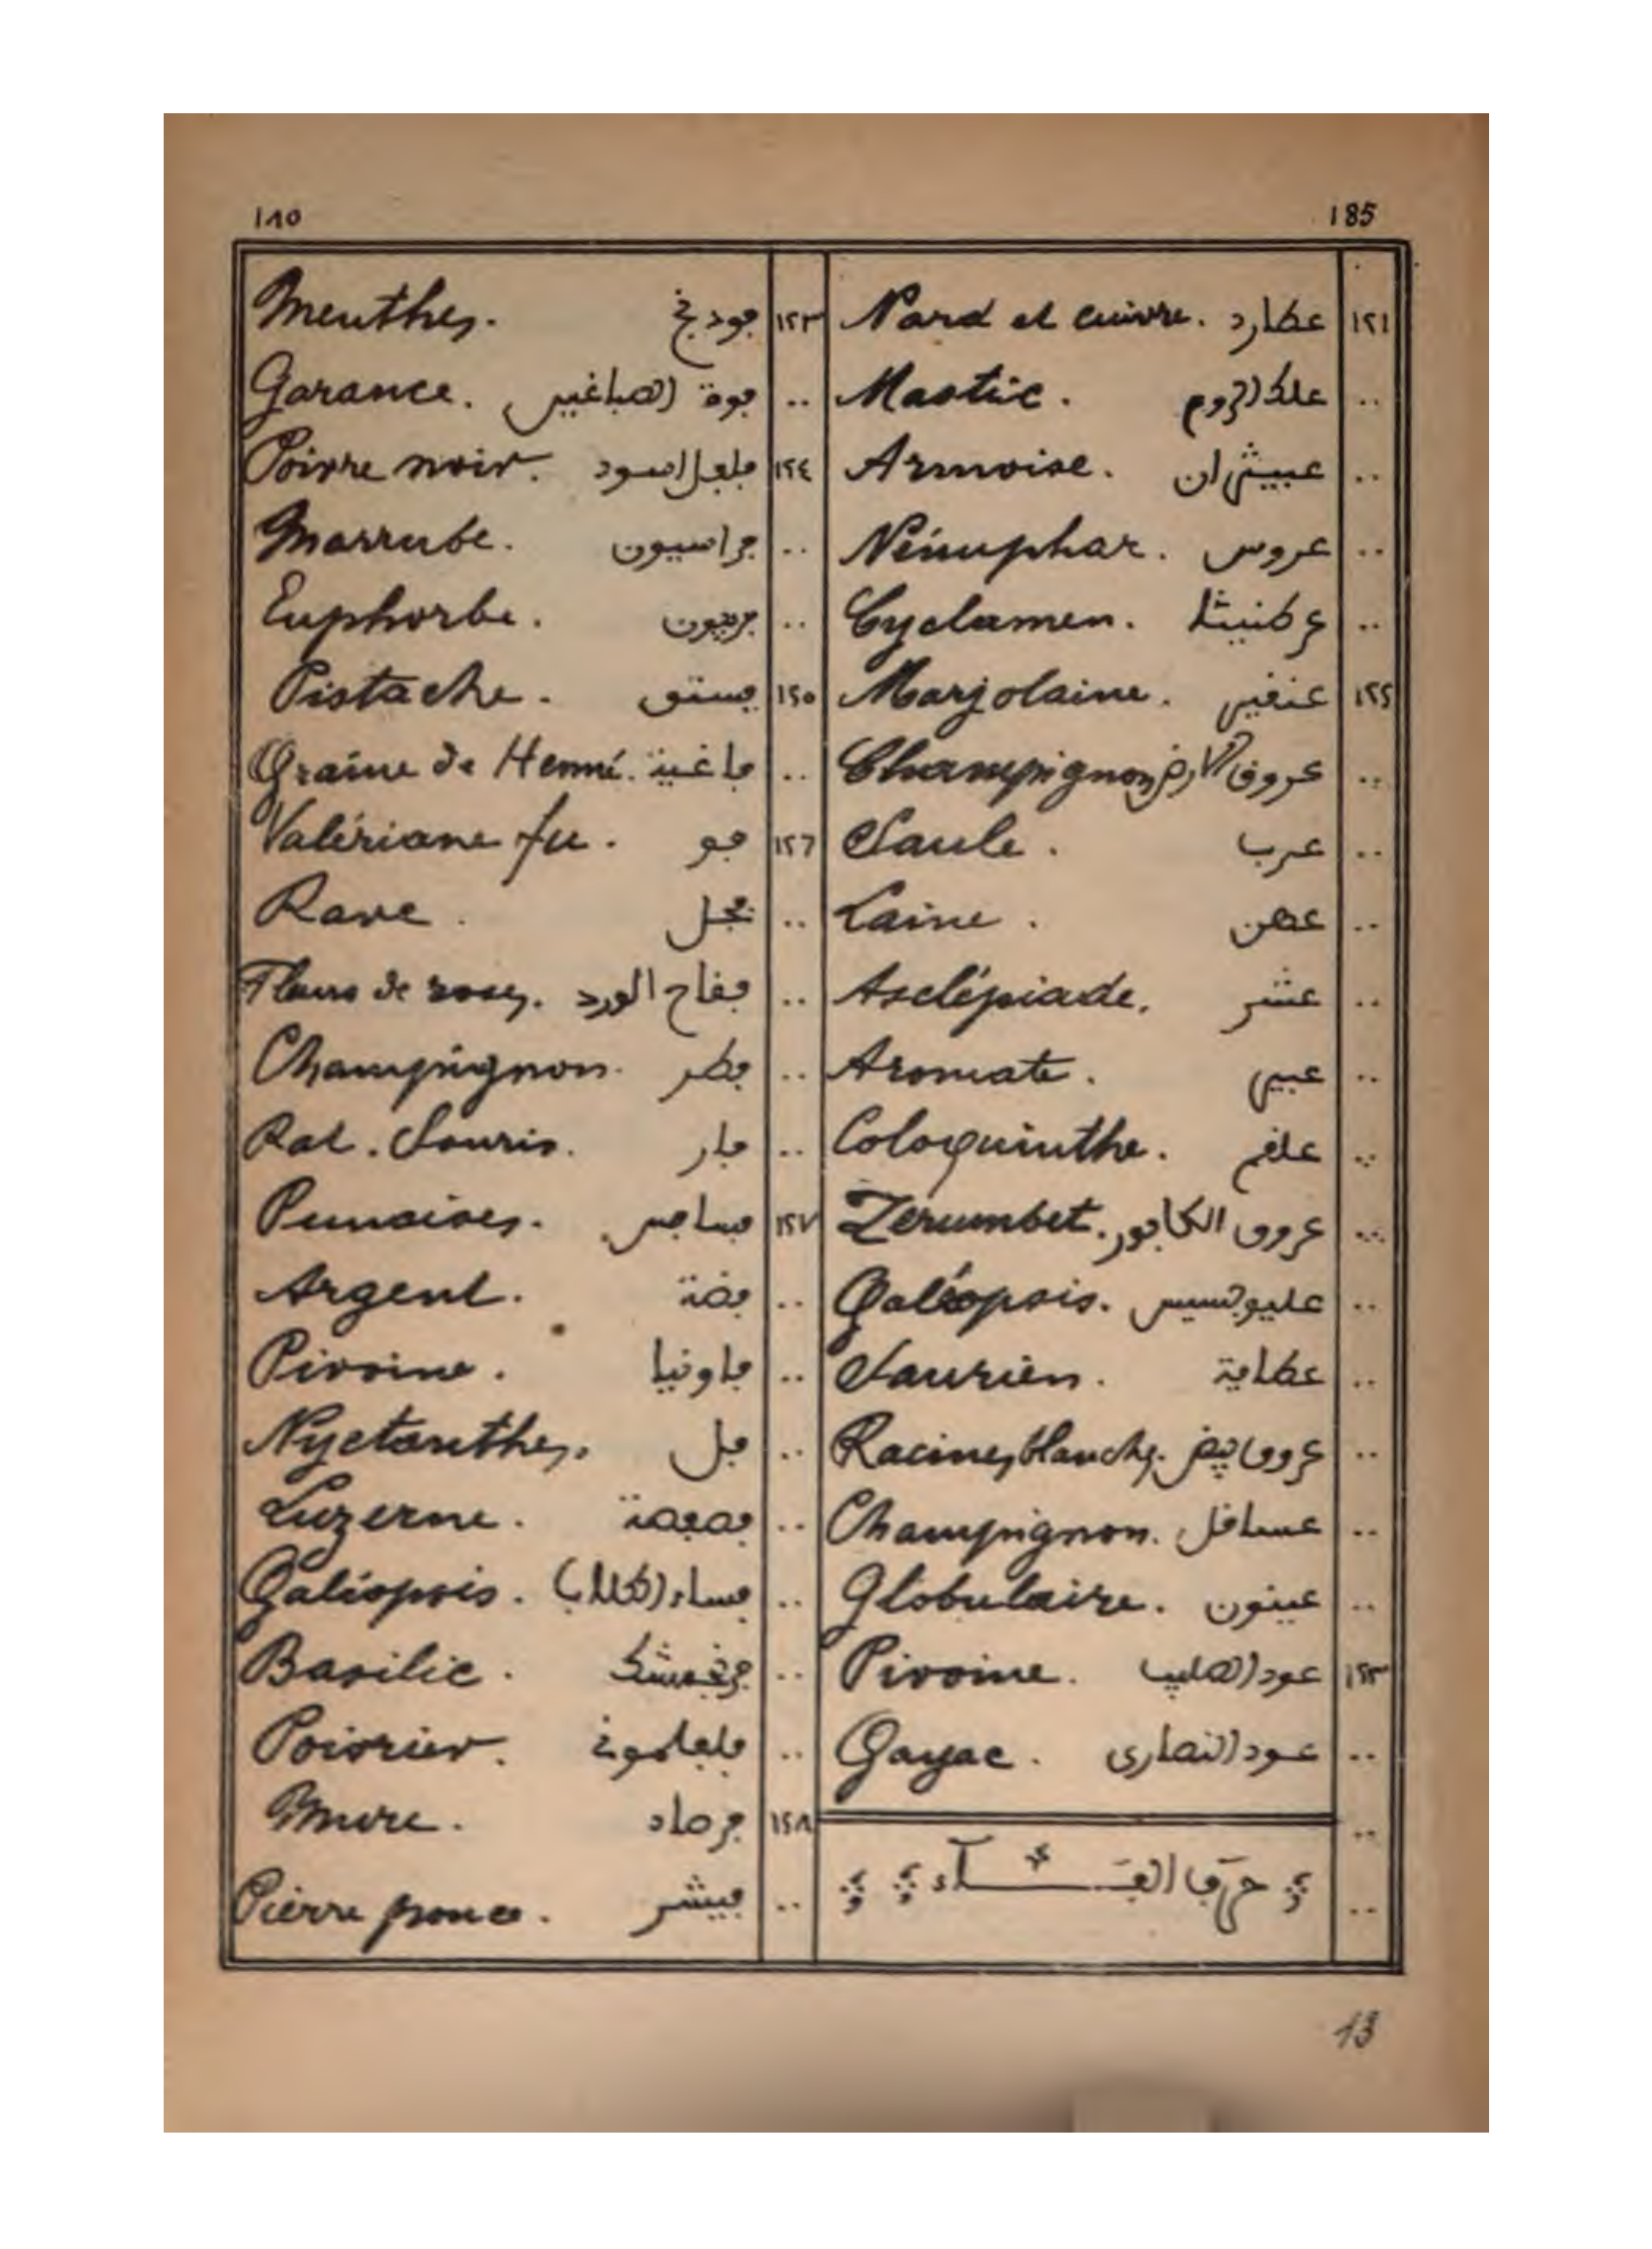 ١٨٥ 185
١٢١ عطارد Nard et cuivre.
.. علك الروم Mastic.
.. عبيثران Armoise.
.. عروس Nénuphar.
.. عرطنيثا Cyclamen.
١٢٢ عنقر Marjolaine.
.. عروق الارض Champignon
.. غرب Saule.
.. عهن Laine.
.. عشر Asclépiade.
.. عبير Aromate.
.. علقم Coloquinthe.
.. عروق الكافور Zerumbet.
.. غليوبسيس Galéopsis.
.. عظاية Saurien.
.. عروق بيض Racines blanches.
.. عساقل Champignon.
.. عينون Globulaire.
١٢٣ عود الصليب Pivoine.
.. عود النصارى Gayac.
..
.. حرف الفاء
١٢٣ فودنج Menthes.
.. فوة الصباغين Garance.
١٢٤ فلفل اسود Poivre noir.
.. فراسيون Marrube.
.. فربيون Euphorbe.
١٢٥ فستق Pistache.
.. فاغية Graine de Henné.
١٢٦ فو Valériane fu.
.. فجل Rave.
.. فقاح الورد Fleurs de roses.
.. فطر Champignon.
.. فار Rat. Souris.
١٢٧ فسافس Punaises.
.. فضة Argent.
.. فاونيا Pivoine.
.. فل Nyctanthes.
.. فصفصة Luzerne.
.. فساء الكلاب Galéopsis.
.. فرنجمشك Basilic.
.. فلفلمونه Poivrier.
١٢٨ فرصاد Mure.
.. فينشر Pierre ponce.
13